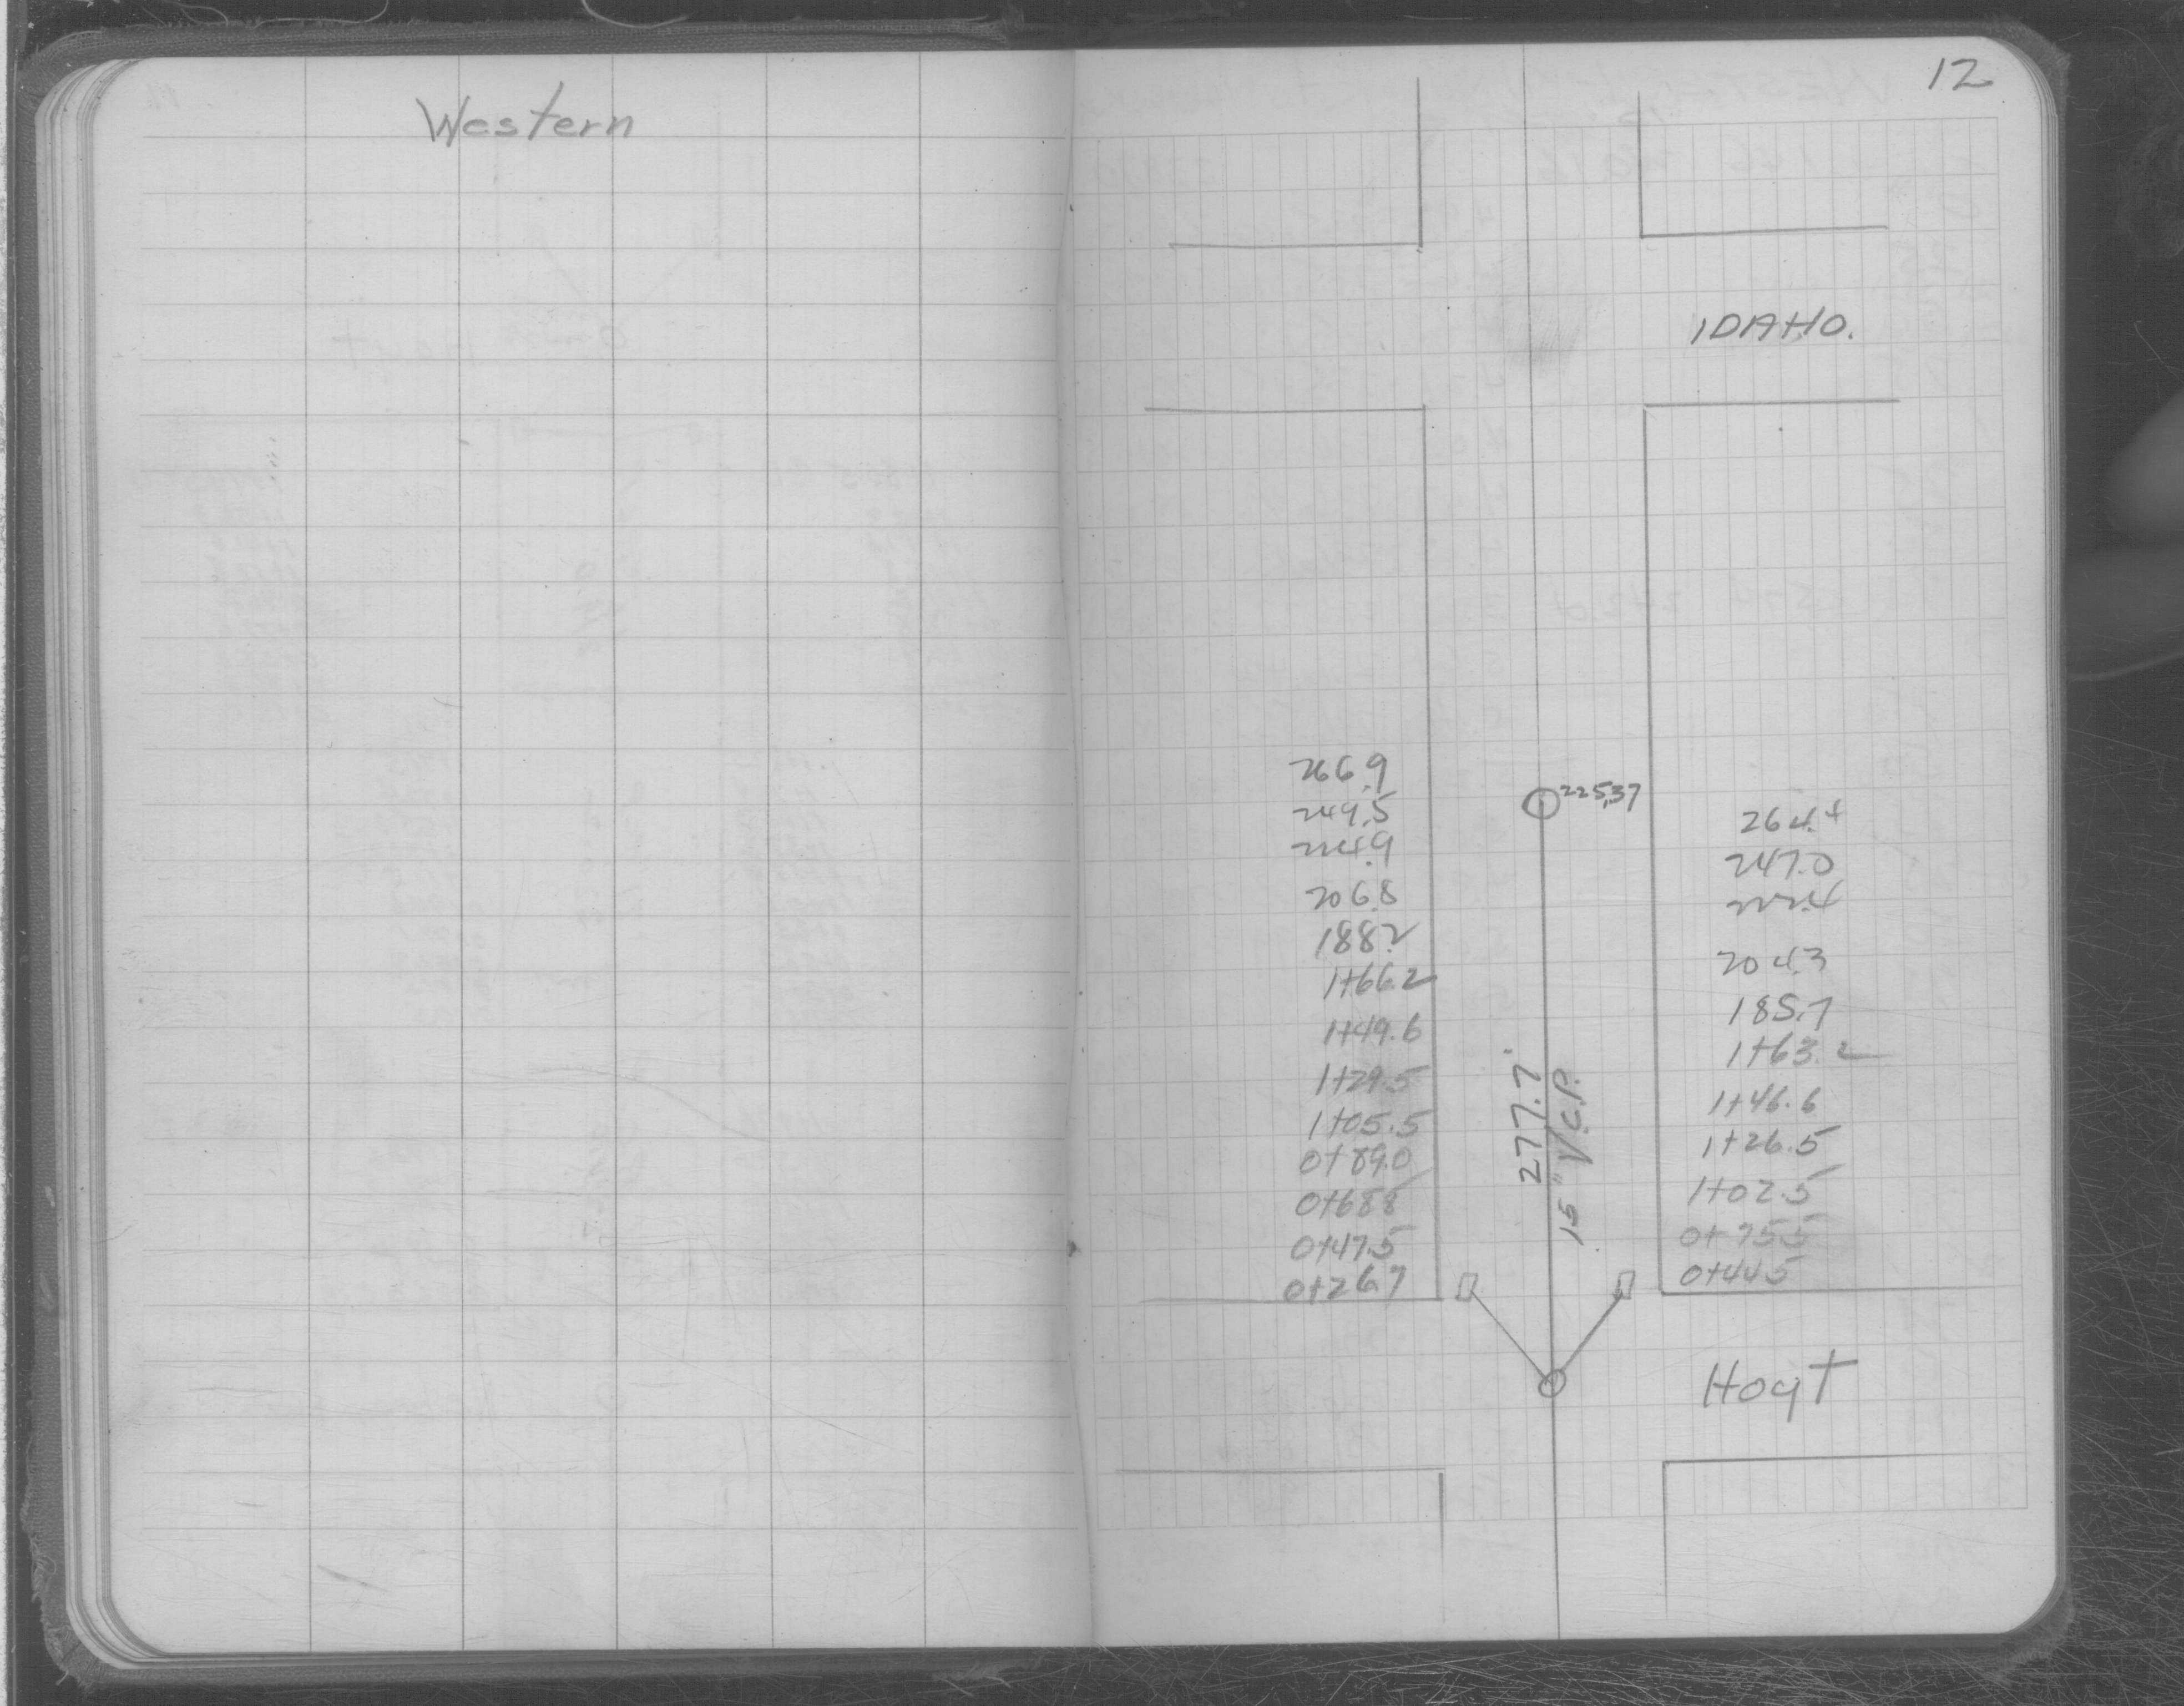 Western
12
IDAHO.
266.9
249.5
224.9
206.8
188.2
1+66.2
1+49.6
1+29.5
1+05.5
0+89.0
0+68.8
0+47.5
0+26.7
225.37
277.7
15" V.C.P.
264.4
247.0
222.4
204.3
185.7
1+63.2
1+46.6
1+26.5
1+02.5
0+75.5
0+44.5
Hoyt